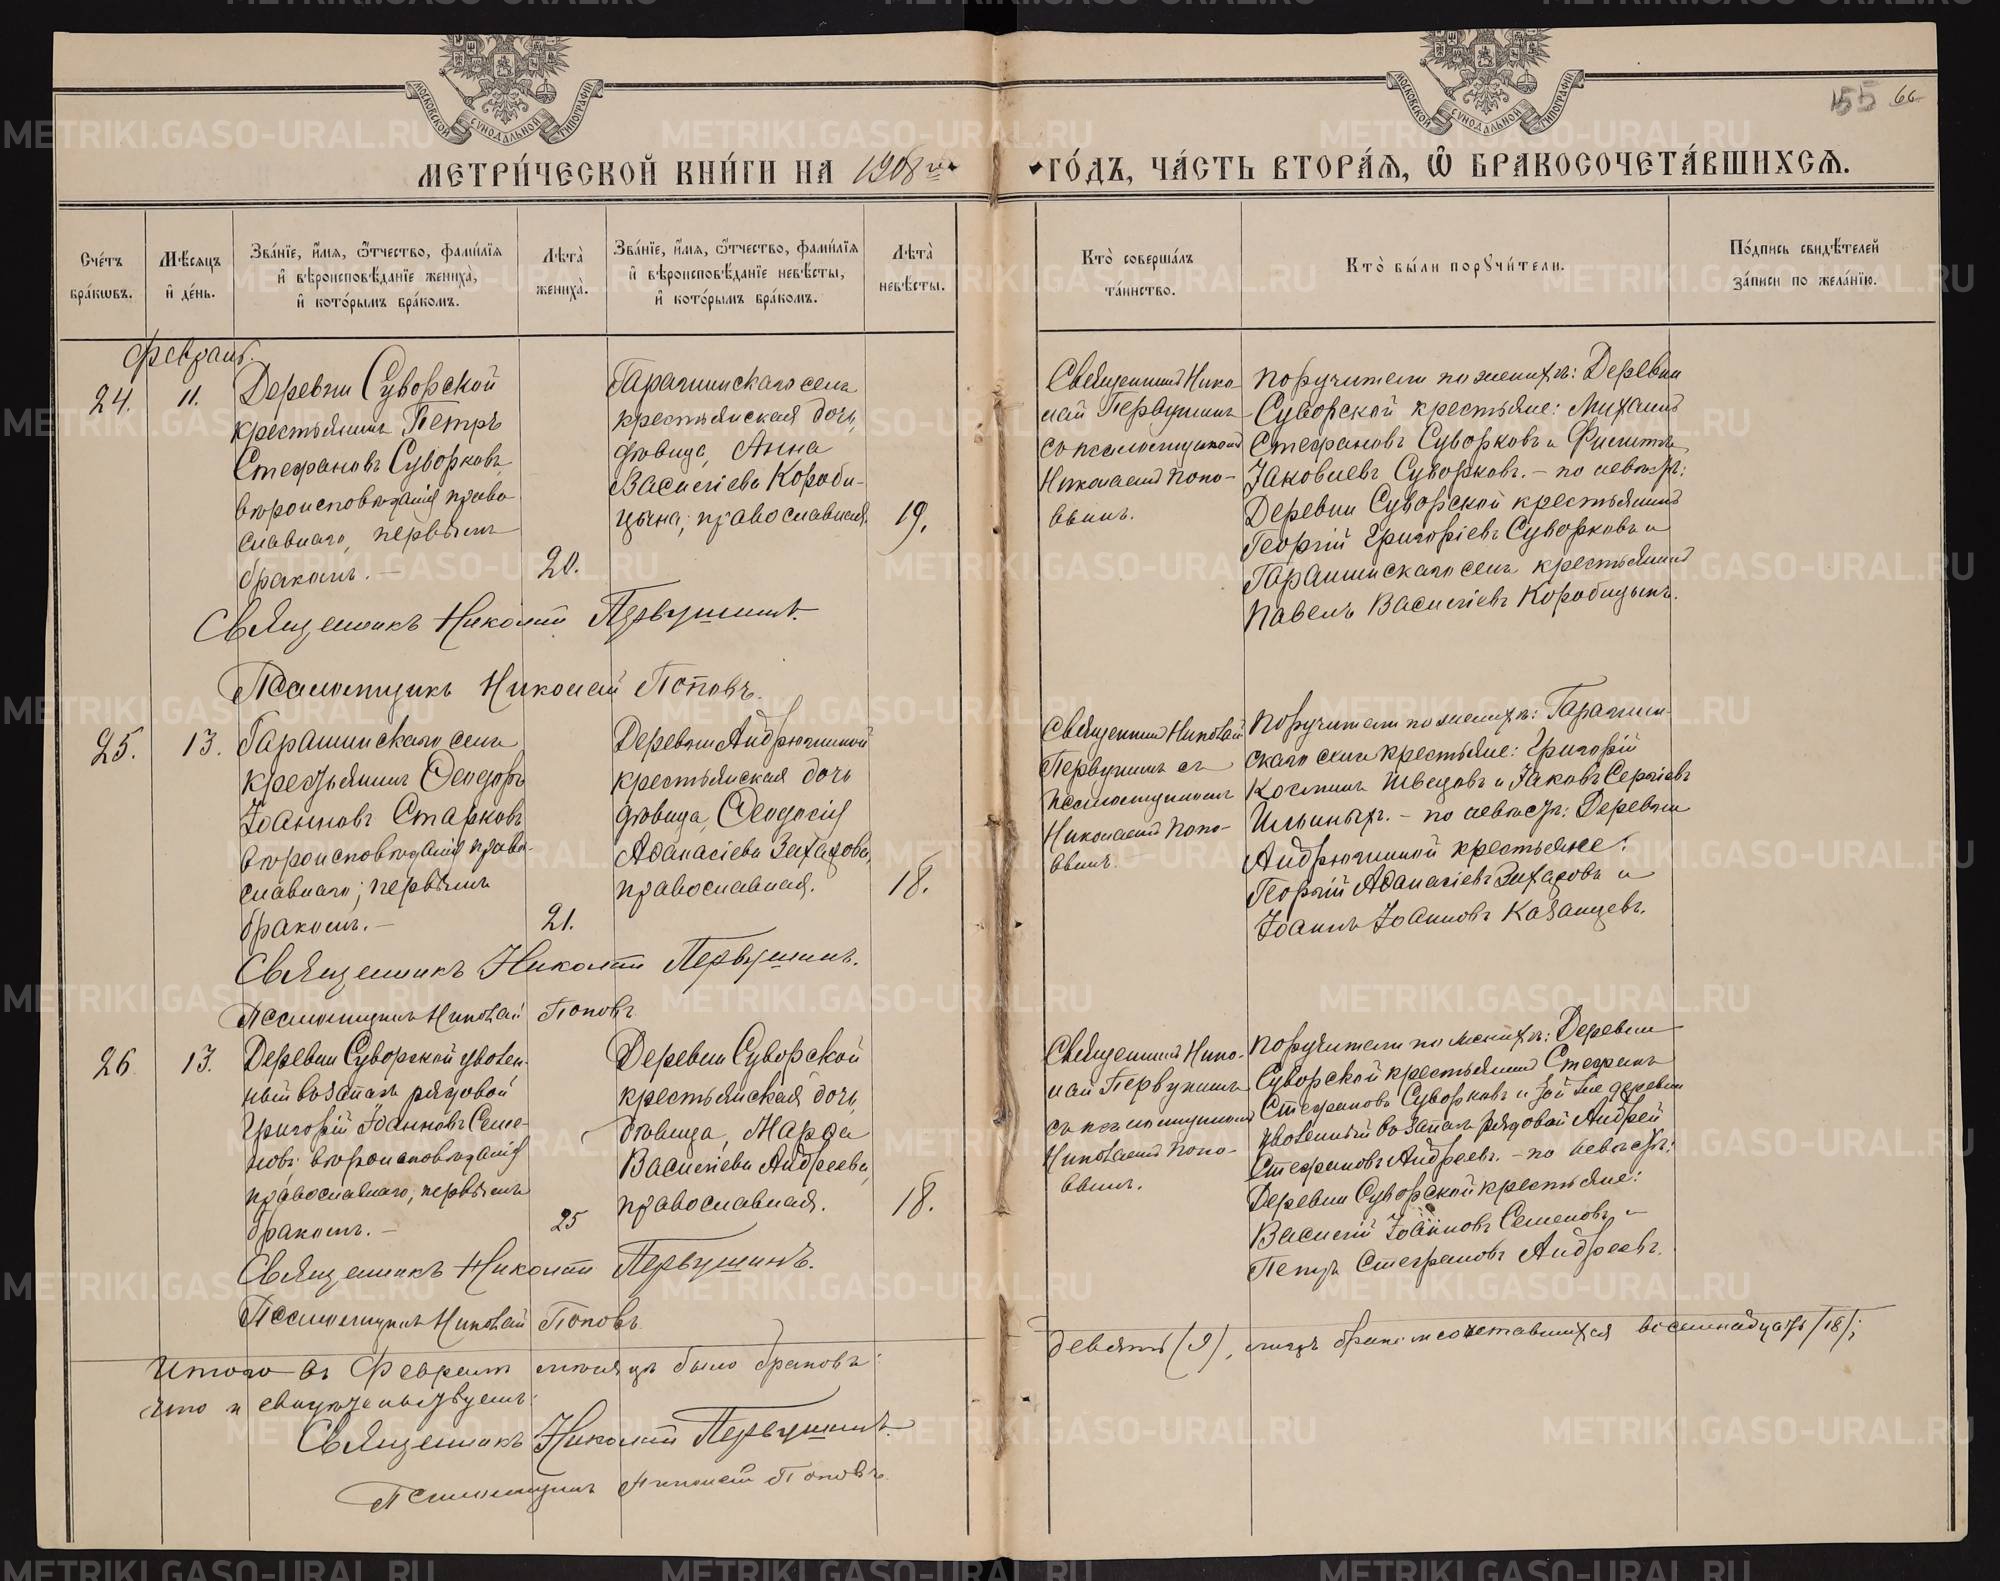 МОСКОВСКОЙ СѴНОДАЛЬНОЙ ТИПОГРАФІИ
МОСКОВСКОЙ СѴНОДАЛЬНОЙ ТИПОГРАФІИ
155 66
МЕТРИ́ЧЕСКОЙ КНИ́ГИ НА 1908 г.
ГО́ДЪ, ЧА́СТЬ ВТОРА́Ѧ, Ѡ҆ БРАКОСОЧЕТА́ВШИХСѦ.
Сче́тъ бра́кѡвъ.
Мѣ́сѧцъ и҆ де́нь.
Зва́нїе, и҆́мѧ, ѻ҆́тчество, фами́лїѧ и҆ вѣроисповѣ́данїе жениха̀, и҆ кото́рымъ бра́комъ.
Лѣта̀ жениха̀.
Зва́нїе, и҆́мѧ, ѻ҆́тчество, фами́лїѧ и҆ вѣроисповѣ́данїе невѣ́сты, и҆ кото́рымъ бра́комъ.
Лѣта̀ невѣ́сты.
Кто̀ соверша́лъ та́инство.
Кто̀ бы́ли порꙋчи́тели.
По́дпись свидѣ́телей за́писи по жела́нїю.
Февраль.
24.
11.
Деревни Суворской
крестьянинъ Петръ
Стефановъ Суворковъ,
вѣроисповѣданія право
славнаго, первымъ
бракомъ. —
20.
Гарашинскаго села
крестьянская дочь,
дѣвица, Анна
Василіева Короби-
цына, православная.
19.
Священникъ Нико
лай Первушинъ
съ псаломщикомъ
Николаемъ Попо-
вымъ.
Поручители по женихѣ: Деревни
Суворской крестьяне: Михаилъ
Стефановъ Суворковъ и Филиппъ
Іаковлевъ Суворковъ. — по невѣстѣ:
Деревни Суворской крестьянинъ
Георгій Григоріевъ Суворковъ и
Гарашинскаго села крестьянинъ
Павелъ Василіевъ Коробицынъ.
Священникъ Николай Первушинъ.
Псаломщикъ Николай Поповъ.
25.
13.
Гарашинскаго села
крестьянинъ Ѳеодоръ
Іоанновъ Старковъ
вѣроисповѣданія право-
славнаго; первымъ
бракомъ. —
21.
Деревни Андрюшиной
крестьянская дочь
дѣвица, Ѳеодосія
Аѳанасіева Захарова,
православная.
18.
Священникъ Николай
Первушинъ съ
псаломщикомъ
Николаемъ Попо-
вымъ.
Поручители по женихѣ: Гарашин-
скаго села крестьяне: Григорій
Косминъ Швецовъ и Іаковъ Сергіевъ
Ильиныхъ. — по невѣстѣ: Деревни
Андрюшиной крестьяне:
Георгій Аѳанасіевъ Захаровъ и
Іоаннъ Іоанновъ Казанцевъ.
Священникъ Николай Первушинъ.
Псаломщикъ Николай Поповъ
26
13.
Деревни Суворской уволен-
ный въ запасъ рядовой
Григорій Іоанновъ Семе-
новъ вѣроисповѣданія
православнаго, первымъ
бракомъ. —
25
Деревни Суворской
крестьянская дочь,
дѣвица, Марѳа
Василіева Андреева,
православная.
18.
Священникъ Нико-
лай Первушинъ
съ псаломщикомъ
Николаемъ Попо-
вымъ.
Поручители по женихѣ: Деревни
Суворской крестьянинъ Стефанъ
Стефановъ Суворковъ и той же деревни
уволенный въ запасъ рядовой Андрей
Стефановъ Андреевъ. — по невѣстѣ:
Деревни Суворской крестьяне:
Василій Іоанновъ Семеновъ и
Петръ Стефановъ Андреевъ.
Священникъ Николай Первушинъ.
Псаломщикъ Николай Поповъ.
Итого въ Февралѣ мѣсяцѣ было браковъ: девять (9), лицъ бракомъ сочетавшихся восемнадцать (18);
что и свидѣтельствуемъ:
Священникъ Николай Первушинъ.
Псаломщикъ Николай Поповъ.
METRIKI.GASO-URAL.RU